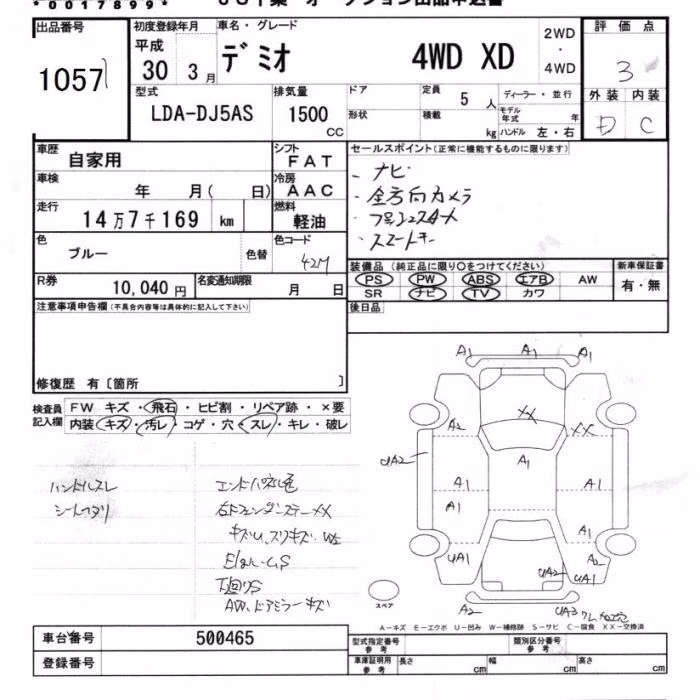 *0017899*
出品番号
1057
初度登録年月
平成
30年 3月
車名・グレード
デミオ 4WD XD
2WD
・
4WD
評価点
3
外装 内装
D C
型式
LDA-DJ5AS
排気量
1500
CC
ドア
形状
定員
5人
積載
kg
ディーラー・並行
モデル年式 年
ハンドル 左・右
車歴
自家用
シフト
FAT
車検
年 月( 日)
冷房
AAC
走行
14万7千169 km
燃料
軽油
色
ブルー
色替
色コード
42M
R券
10,040円
名変通知期限
月 日
セールスポイント(正常に機能するものに限ります)
- ナビ
・全方向カメラ
・スマートキー
装備品 (純正品に限り○をつけてください)
PS PW ABS エアB AW
SR ナビ TV カワ
新車保証書
有・無
後日品
注意事項申告欄(不具合内容等は具体的に記入して下さい)
修復歴 有〔箇所 〕
検査員
記入欄
FW キズ・飛石・ヒビ割・リペア跡・×要
内装 キズ・汚レ・コゲ・穴・スレ・キレ・破レ
ハンドルスレ
シートヘタリ
下回りS
AW、ドアミラーキズ
A1 A1 A1
A2
XX
XX
A1
UA2
A1
A1
A1
A1
UA1
A2
UA2
UA1
A2
UA3
スペア
A-キズ E-エクボ U-凹み W-補修跡 S-サビ C-腐食 XX-交換済
車台番号
500465
登録番号
型式指定番号
参考
類別区分番号
参考
車庫証明用
参考
長さ cm
幅 cm
高さ cm